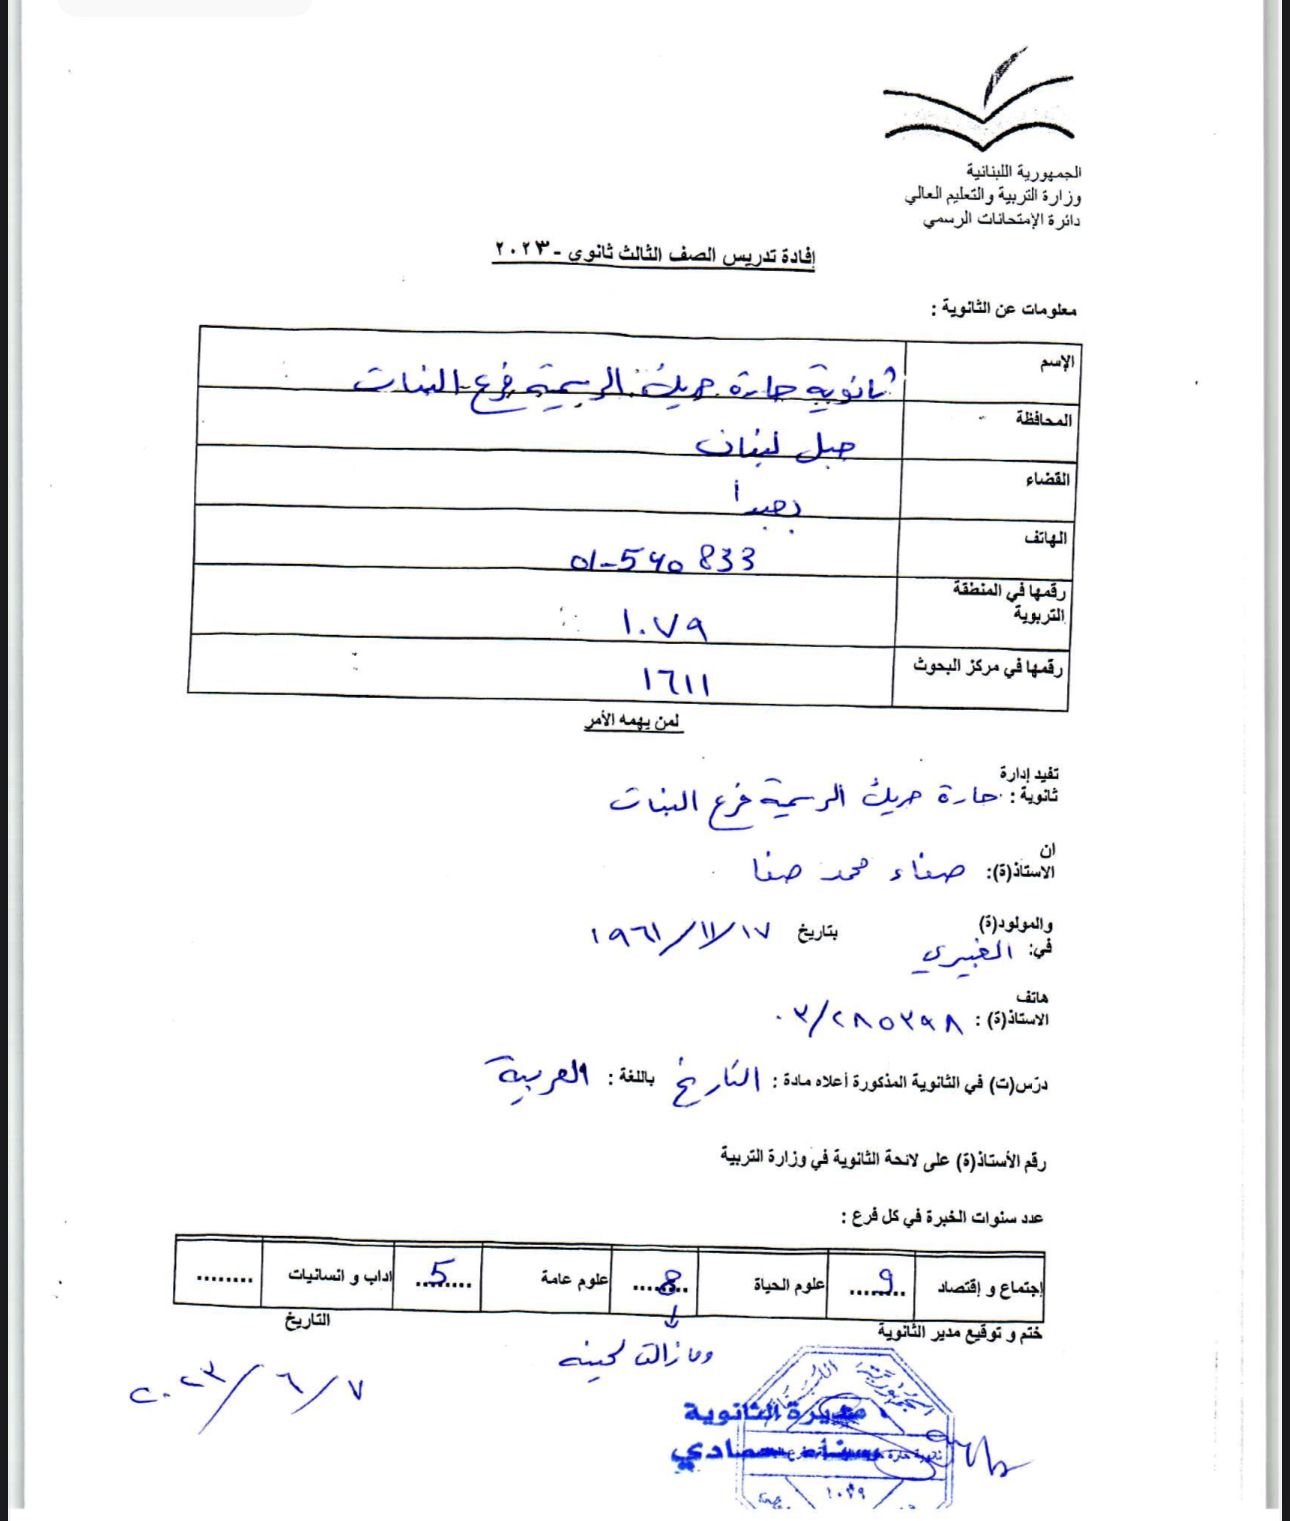 الجمهورية اللبنانية
وزارة التربية والتعليم العالي
دائرة الإمتحانات الرسمي
إفادة تدريس الصف الثالث ثانوي - ٢٠٢٣
معلومات عن الثانوية :
الإسم ثانوية حارة حريك الرسمية فرع البنات
المحافظة جبل لبنان
القضاء بعبدا
الهاتف 01-540 833
رقمها في المنطقة التربوية ١٠٧٩
رقمها في مركز البحوث ١٦١١
لمن يهمه الأمر
تفيد إدارة
ثانوية : حارة حريك الرسمية فرع البنات
ان
الاستاذ(ة): صفاء محمد صفا
والمولود(ة)
في: الغبيري بتاريخ ١٩٦١/١١/١٧
هاتف
الاستاذ(ة) : ٠٣/٢٨٥٣٩٨
درّس(ت) في الثانوية المذكورة أعلاه مادة : التاريخ باللغة : العربية
رقم الأستاذ(ة) على لائحة الثانوية في وزارة التربية
عدد سنوات الخبرة في كل فرع :
إجتماع و إقتصاد 9 علوم الحياة 8 علوم عامة 5 اداب و انسانيات ........
ختم و توقيع مدير الثانوية التاريخ
وما زالت لحينه
٢٠٢٣/٦/٧
مديرة الثانوية